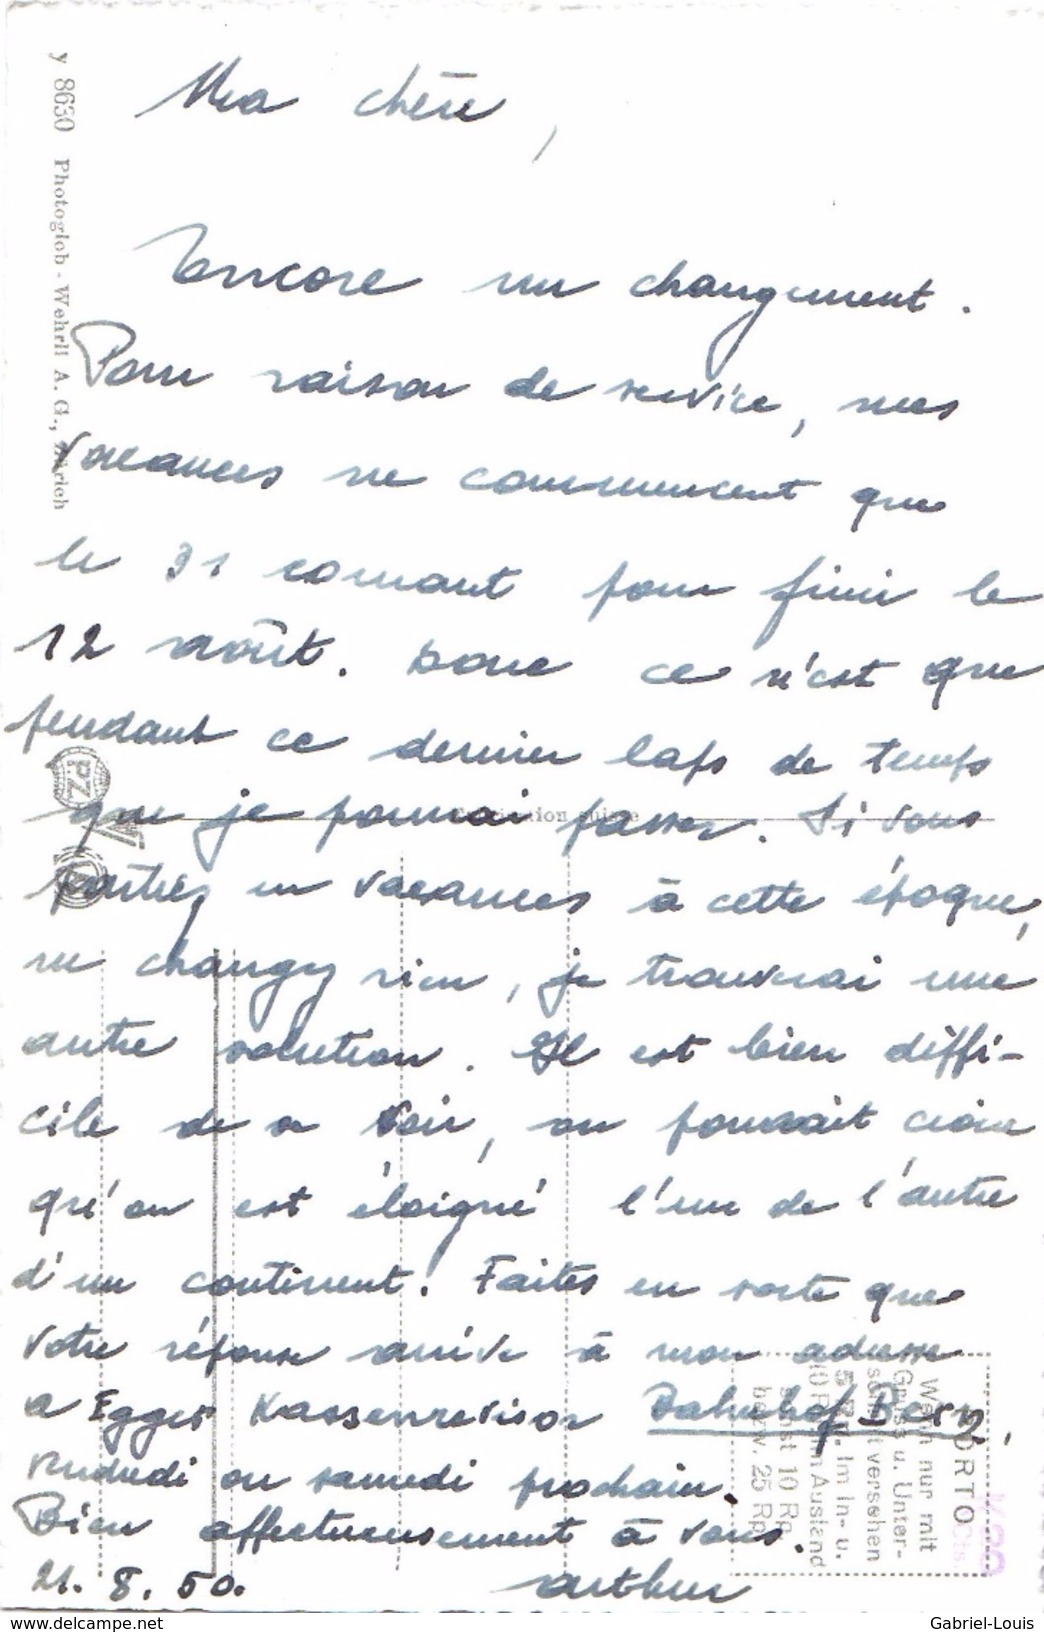 Ma chère,
Encore un changement.
Pour raison de service, mes
vacances ne commencent que
le 31 courant pour finir le
12 août. Donc ce n'est que
pendant ce dernier laps de temps
que je pourrai passer. Si vous
partiez en vacances à cette époque,
ne changez rien, je trouverai une
autre solution. Il est bien diffi-
cile de se voir, on pourrait croire
qu'on est éloigné l'un de l'autre
d'un continent. Faites en sorte que
votre réponse arrive à mon adresse
a Egger Kassenrevisor Bahnhof Bern,
vendredi ou samedi prochain.
Bien affectueusement à vous.
21. 8. 50. Arthur
y 8630 Photoglob - Wehrli A. G., Zürich
PZ
Fabrication suisse
PORTO
Wenn nur mit
Gruss u. Unter-
schrift versehen
5 Rp. im In- u.
10 Rp. im Ausland
sonst 10 Rp.
bezw. 25 Rp.
Cts.
Gabriel-Louis